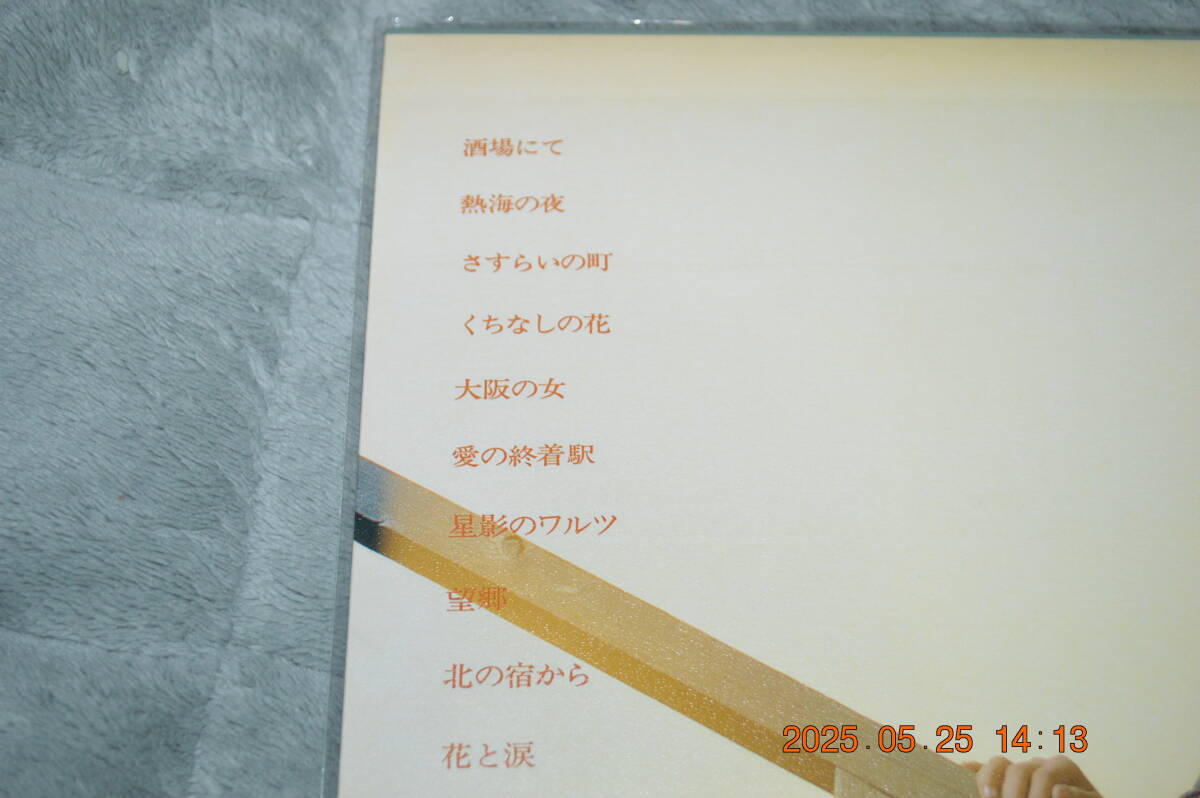 酒場にて
熱海の夜
さすらいの町
くちなしの花
大阪の女
愛の終着駅
星影のワルツ
望郷
北の宿から
花と涙
2025.05.25 14:13